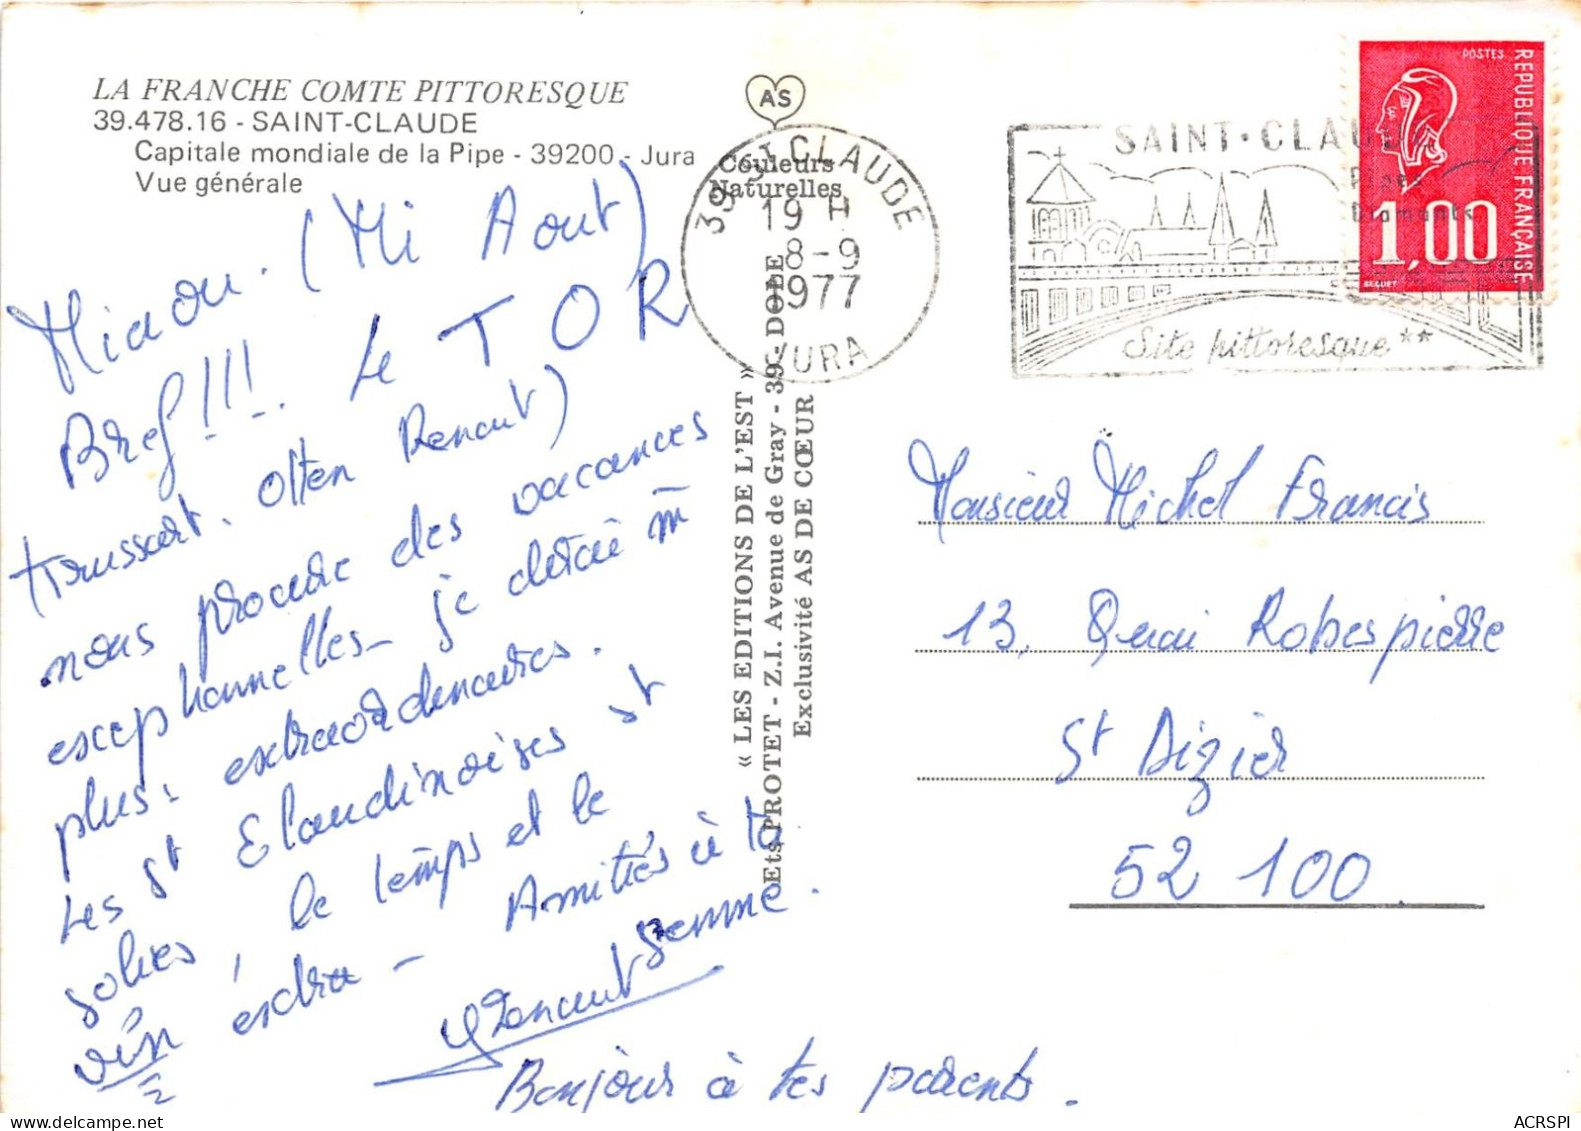 LA FRANCHE COMTE PITTORESQUE
39.478.16 - SAINT-CLAUDE
Capitale mondiale de la Pipe - 39200 - Jura
Vue générale
AS
Couleurs
Naturelles
39 ST CLAUDE
19 H
8-9
1977
JURA
SAINT·CLAUDE
Pipes
Diamants
Site pittoresque**
POSTES
REPUBLIQUE FRANÇAISE
1,00
BEQUET
Miaou. (Mi Aout)
Bref!!!. Le TOR
Renaut)
nous procure des vacances
exceptionnelles - je dirai m̄
plus: extraordinaires.
Les St Claudinoises st
jolies, le temps et le
vin extra - Amitiés à ta
femme.
Renaut
Bonjour à tes parents.
« LES EDITIONS DE L'EST »
Ets PROTET - Z.I. Avenue de Gray - 39 - DOLE
Exclusivité AS DE CŒUR
Monsieur Michel Francis
13, Quai Robespierre
St Dizier
52 100
ACRSPI